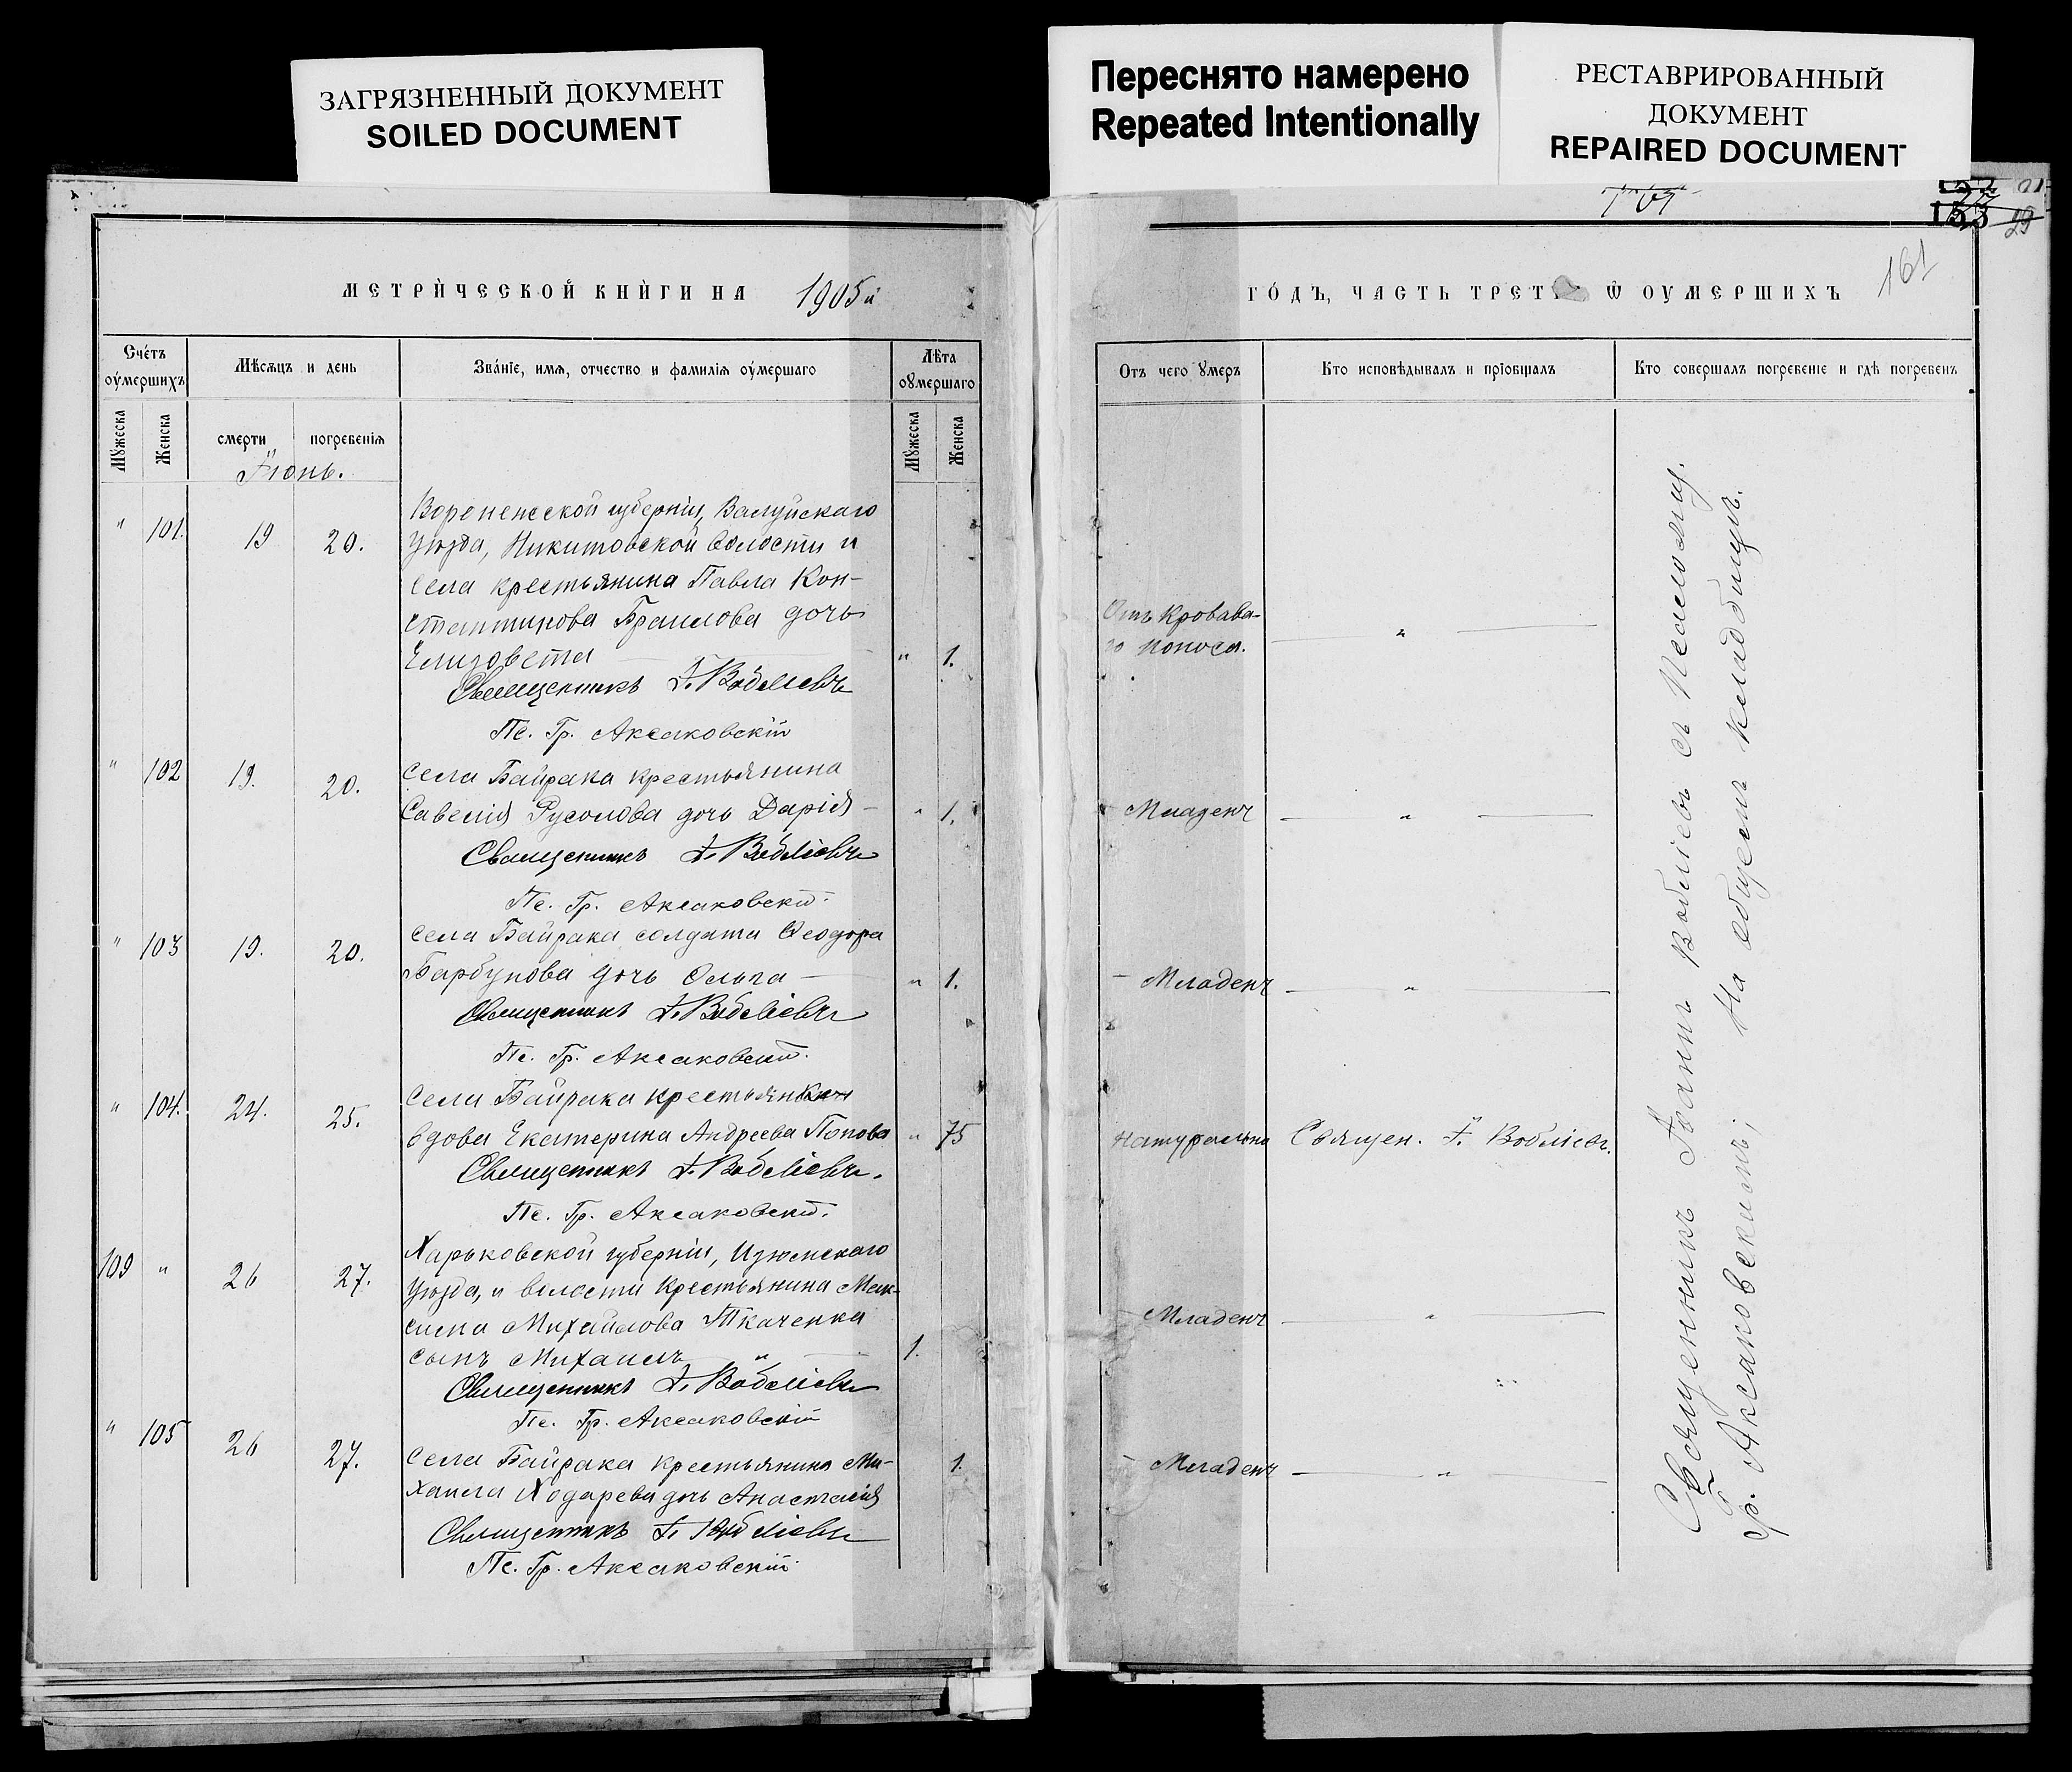 ЗАГРЯЗНЕННЫЙ ДОКУМЕНТ
SOILED DOCUMENT
Переснято намерено
Repeated Intentionally
РЕСТАВРИРОВАННЫЙ
ДОКУМЕНТ
REPAIRED DOCUMENT
153
161
МЕТРИ́ЧЕСКОЙ КНИ́ГИ НА 1905й
Сче́тъ оу́мершихъ
Мѣсѧцъ и день
Зва́нїе, имѧ, отчество и фамилїѧ оу́мершаго
Лѣта оумершаго
Мꙋжеска
Женска
смерти
погребенїѧ
Мꙋжеска
Женска
Іюнь.
" 101. 19 20.
Воронежской губерніи, Валуйскаго
уѣзда, Никитовской волости и
села крестьянина Павла Кон-
стантинова Браилова дочь
Елизовета " 1.
Священникъ І. Вобліевъ
Пс. Гр. Аксаковскій
" 102 19. 20.
Села Байрака крестьянина
Савелія Русолова дочь Дарія " 1.
Священникъ І. Вобліевъ
Пс. Гр. Аксаковскій.
" 103 19. 20.
Села Байрака солдата Ѳеодора
Барбунова дочь Ольга " 1.
Священникъ І. Вобліевъ
Пс. Гр. Аксаковскій.
" 104. 24. 25.
Села Байрака
вдова Екатерина Андреева Попова " 75
Священникъ І. Вобліевъ.
Пс. Гр. Аксаковскій.
109 " 26 27.
Харьковской губерніи, Изюмскаго
уѣзда, и волости крестьянина Мак-
сима Михайлова Ткаченка
сынъ Михаилъ " 1.
Священникъ І. Вобліевъ
Пс. Гр. Аксаковскій
" 105 26 27.
Села Байрака крестьянина Ми- 1.
хаила Ходарева дочь Анастасія
Священникъ І. Вобліевъ
Пс. Гр. Аксаковскій.
ГО́ДЪ, ЧАСТЬ ТРЕТ Ѽ ОУМЕРШИХЪ
Отъ чего ᲂумеръ
Кто исповѣдывалъ и прїобщалъ
Кто совершалъ погребенїе и гдѣ погребенъ
Отъ кровава-
го поноса. "
Младенч "
Младенч "
Натурально Священ. І. Вобліевъ.
Младенч "
Младенч "
Священникъ Іоаннъ Вобліевъ съ Псаломщ.
Гр. Аксаковскимъ; На общемъ кладбищѣ.